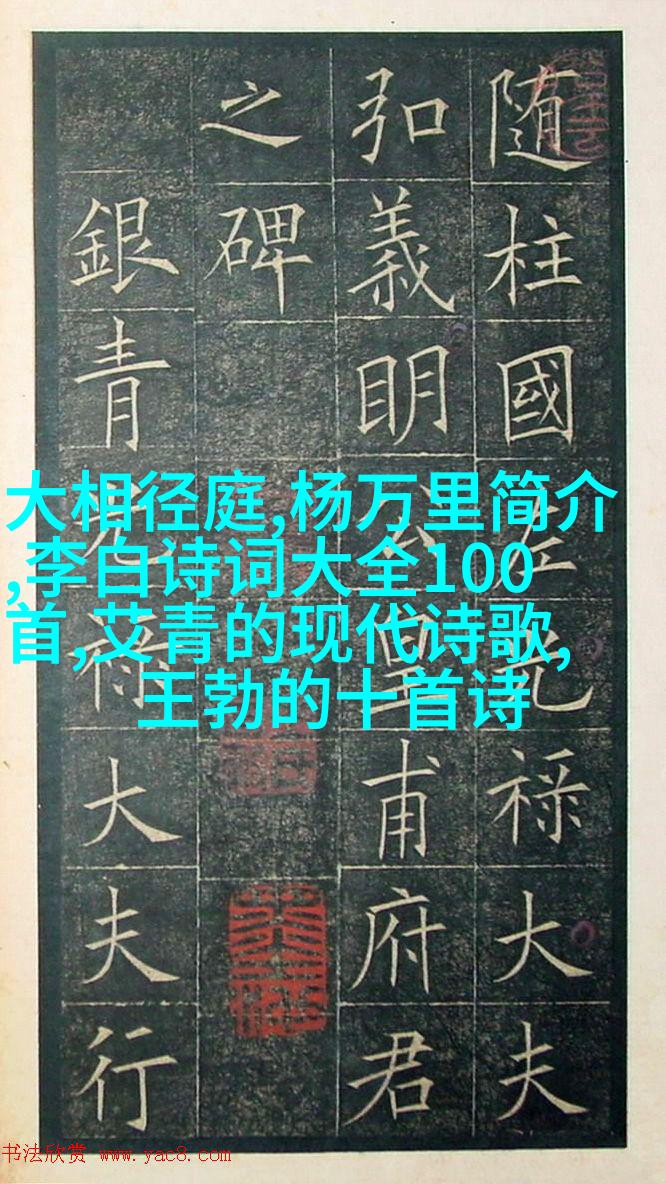 随柱國左光禄大夫
弘義明公皇甫府君
之碑
銀青光禄大夫行
大相径庭,杨万里简介
,李白诗词大全100
首,艾青的现代诗歌,
王勃的十首诗
书法欣赏 www.yac8.com